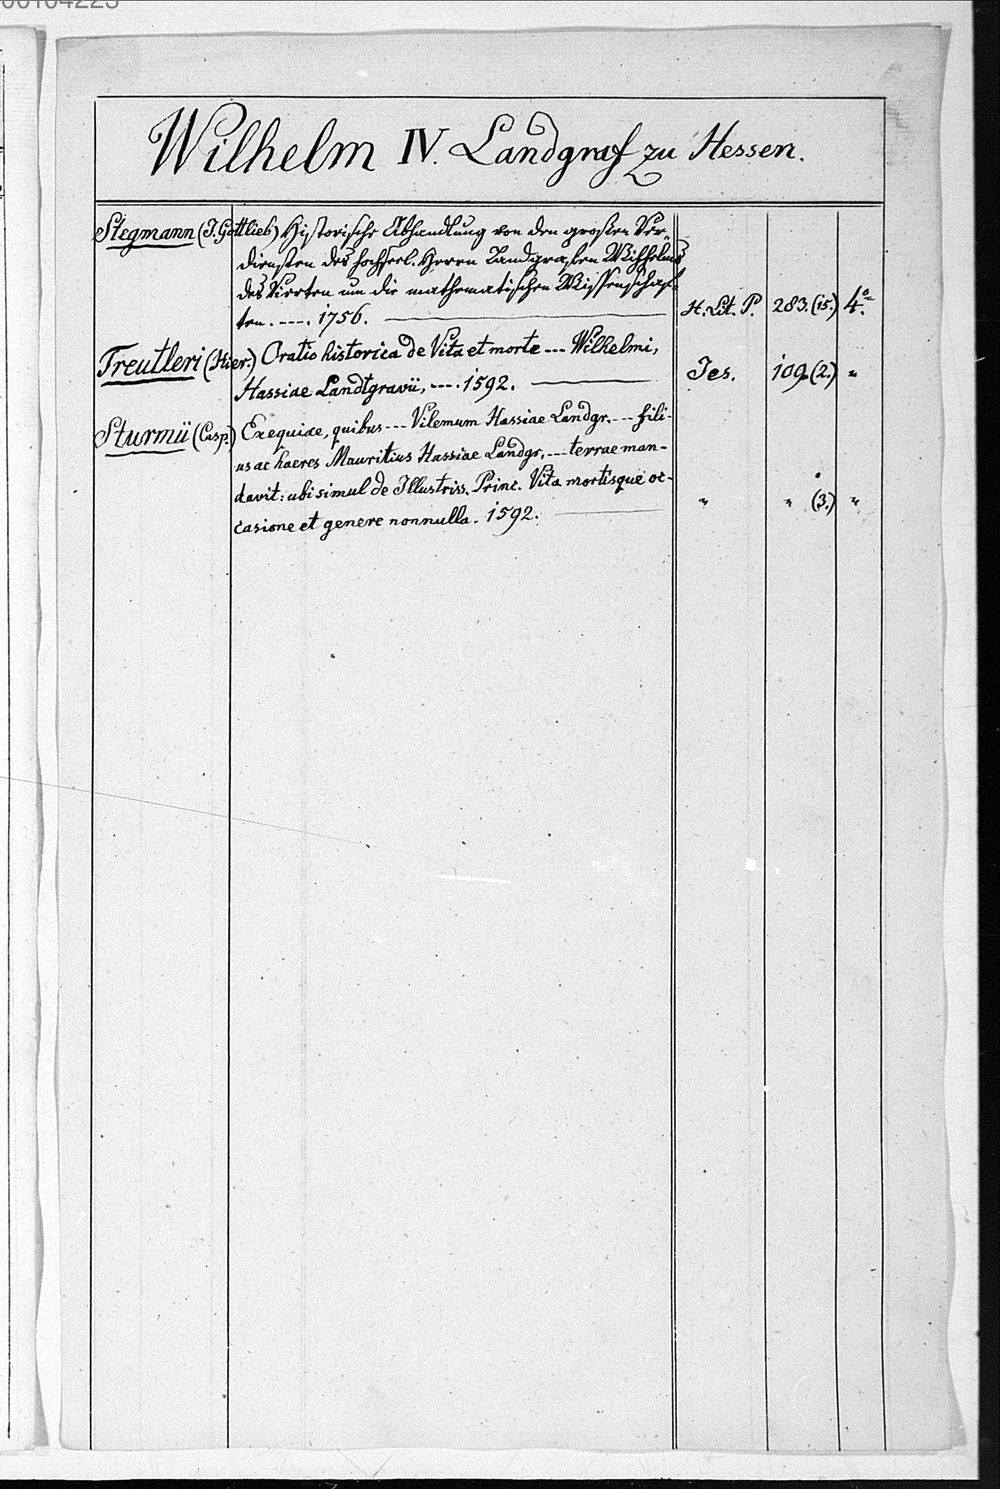 00104223
Wilhelm IV. Landgraf zu Hessen.
Stegmann (J. Gottlieb) Historische Abhandlung von den großen Ver-
diensten des hochseel. Herrn Landgrafen Wilhelms
des Vierten um die mathematischen Wissenschaf-
ten. ---. 1756. H. Lit. P. 283. (15.) 4°.
Treutleri (Hier.) Oratio historica de Vita et morte --- Wilhelmi,
Hassiae Landtgravii, ---. 1592. Jes. 109 (2.) "
Sturmii (Casp.) Exequiae, quibus --- Vilemum Hassiae Landgr. --- fili-
us ac haeres Mauritius Hassiae Landgr. --- terrae man-
davit: ubi simul de Illustriss. Princ. Vita mortisque oc-
casione et genere nonnulla. 1592. " " (3.) "